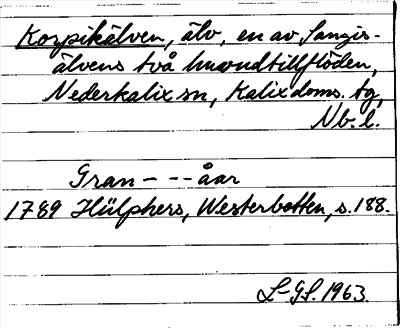 Korpikälven, älv, en av Sangis-
älvens två huvudtillflöden,
Nederkalix sn, Kalix doms. tg,
Nb. l.
Gran - - - åar
1789 Hülphers, Westerbotten, s. 188.
L-GL. 1963.